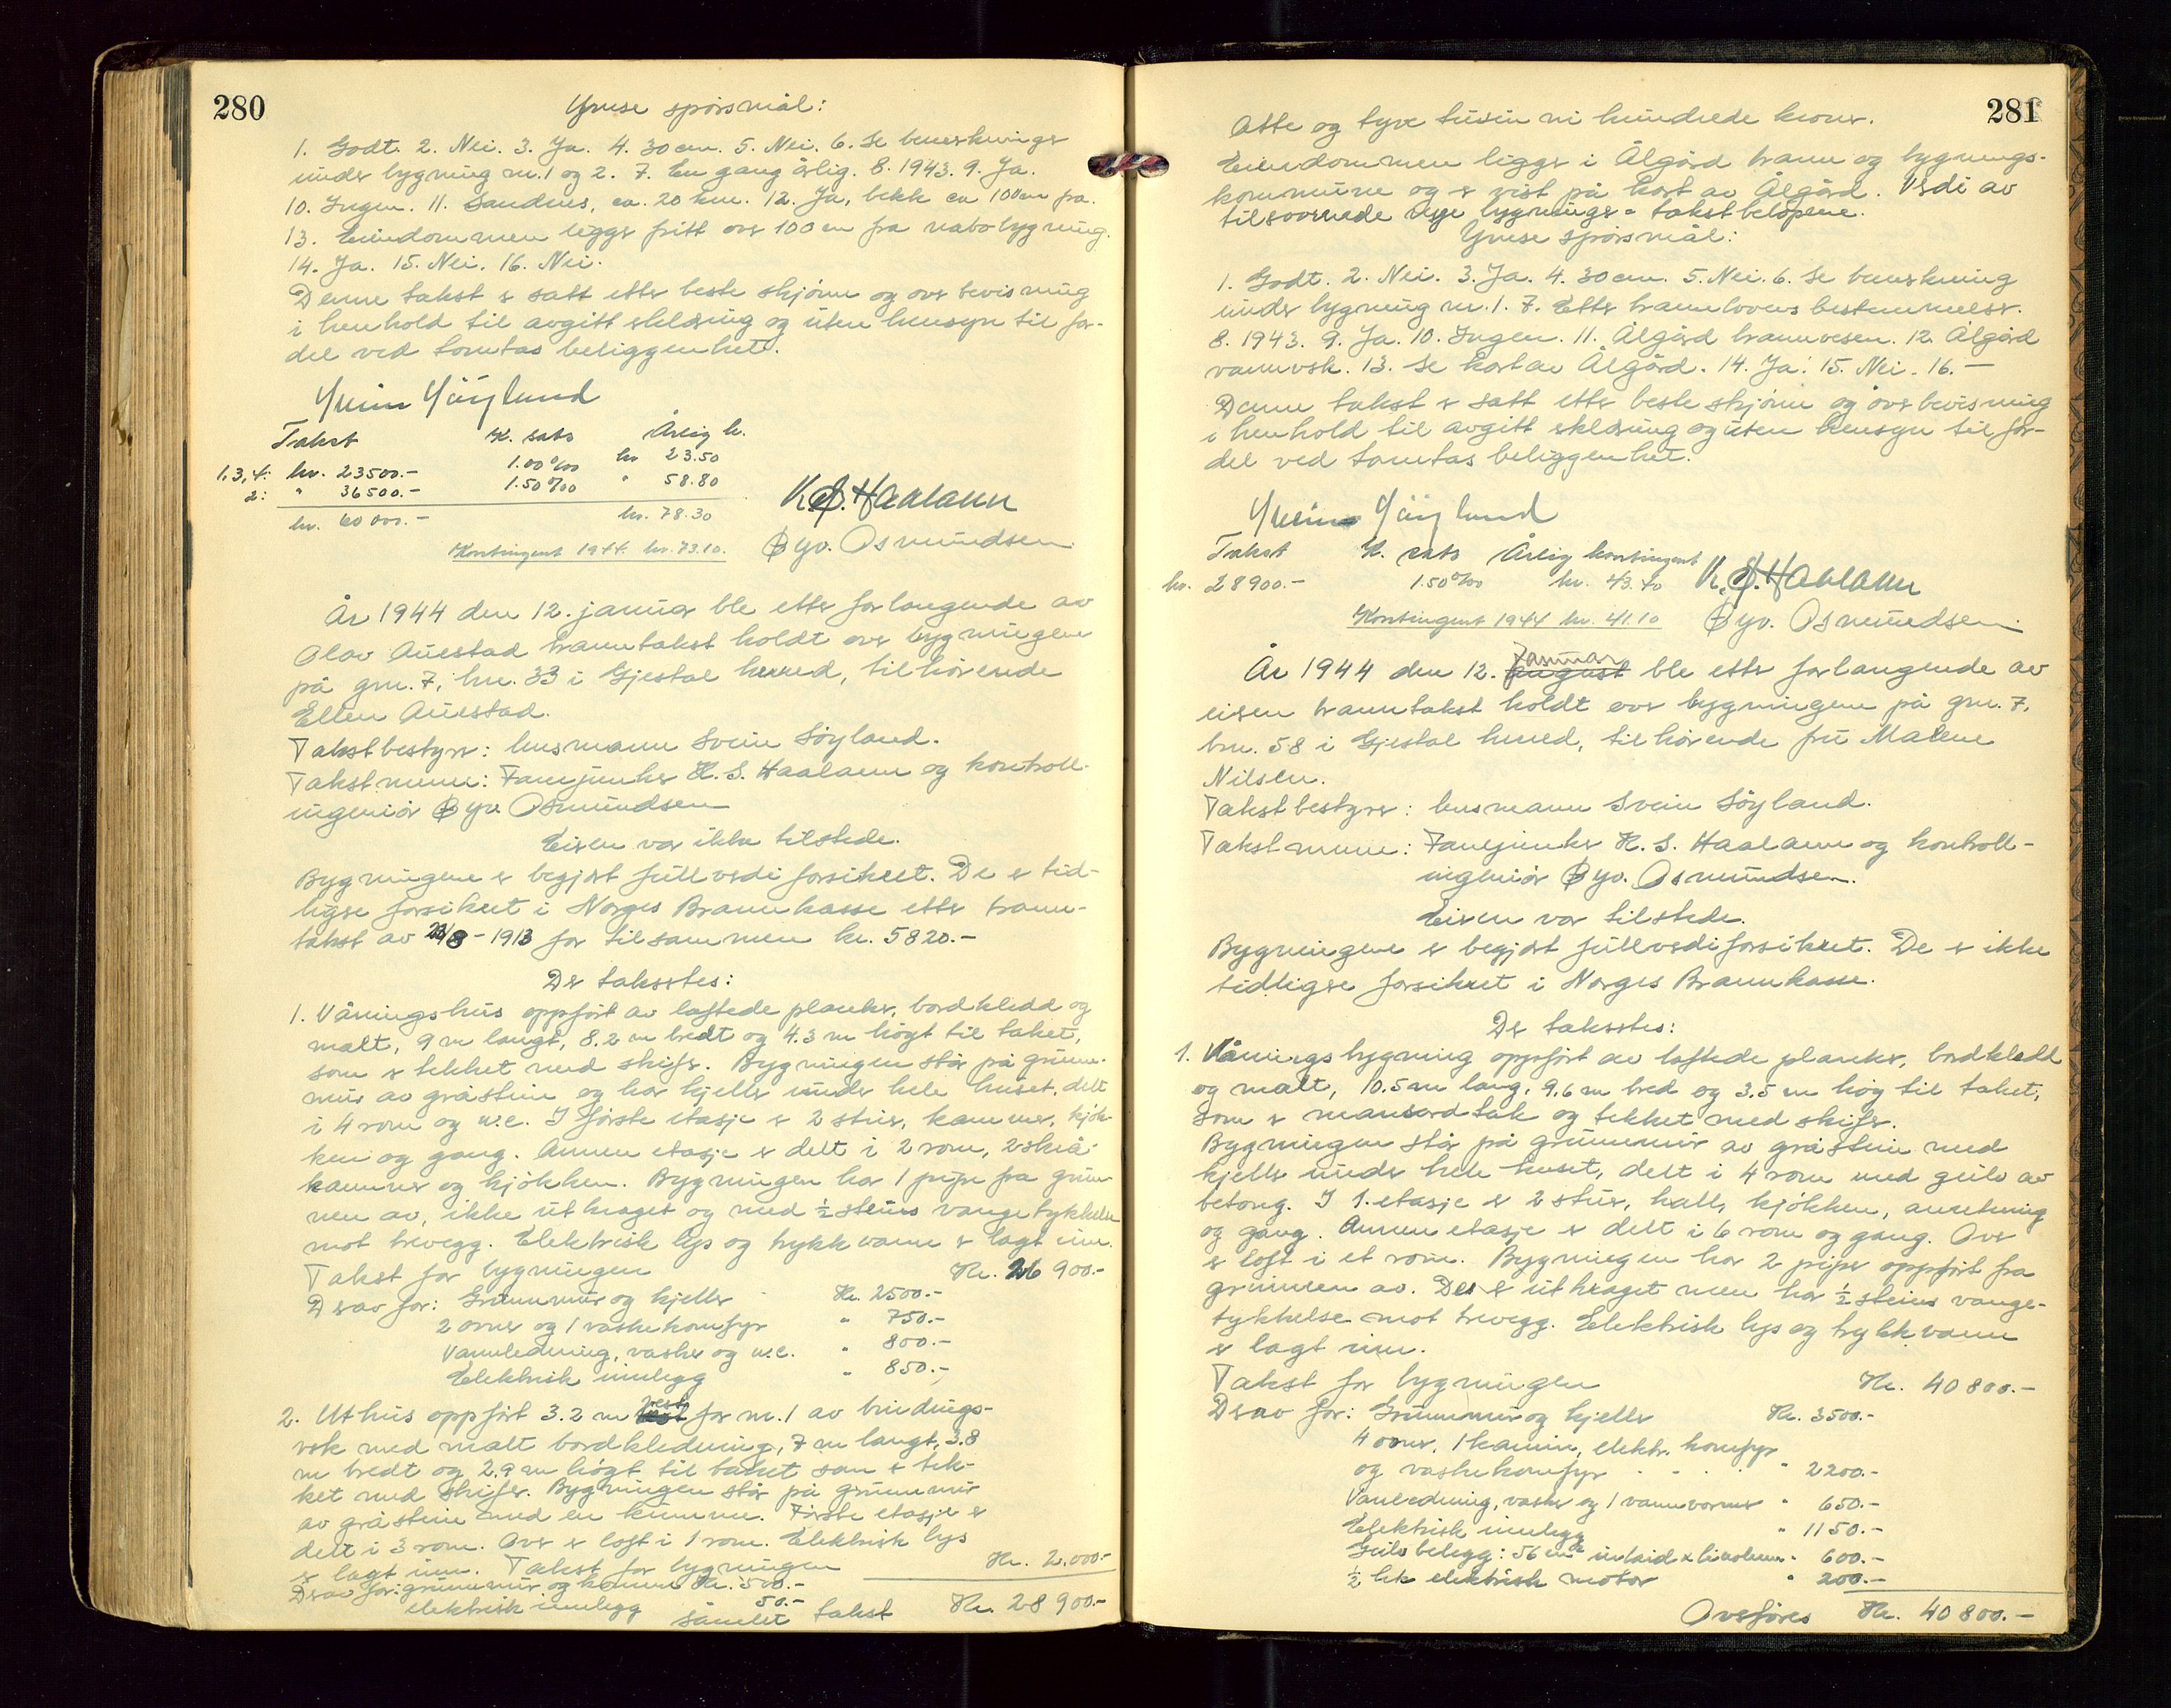 280
Ymse spörsmål:
1. Godt. 2. Nei. 3. Ja. 4. 30 cm. 5. Nei. 6. Se beneskrivings
under bygning nr. 1 og 2. 7. En gang årlig. 8. 1943. 9. Ja.
10. Ingen. 11. Sandnes, ca. 20 km. 12. Ja, bekk ca 100 m fra.
13. Eiendommen ligger fritt over 100 m fra nabobygning.
14. Ja. 15. Nei. 16. Nei.
Denne takst er satt etter beste skjönn og overbevisning
i henhold til avgitt erklæring og uten hensyn til for-
del ved tomtas beliggenhet.
Svein Söyland
Takst K. sats Årlig k.
1,3,4: kr. 23500.- 1.00 ‰ kr 23.50
2: " 36500.- 1.50 ‰ " 58.80
kr. 60 000.- kr. 78.30
K. S. Haalann
Kontingent 1944 kr. 73.10.
Øyv. Osmundsen
År 1944 den 12. januar ble etter forlangende av
Olav Auestad branntakst holdt over bygningene
på gnr. 7, bnr. 33 i Gjestal herred, tilhörende
Ellen Auestad.
Takstbestyrer: lensmann Svein Söyland.
Takstmenn: Fanejunker K. S. Haalann og kontroll-
ingeniör Øyv. Osmundsen
Eieren var ikke tilstede.
Bygningene er begjært fullverdiforsikret. De er tid-
ligere forsikret i Norges Brannkasse etter brann-
takst av 23/8 - 1913 for tilsammen kr. 5820.-
Der taksertes:
1. Våningshus oppfört av laftede planker, bordkledd og
malt, 9 m langt, 8.2 m bredt og 4.3 m högt til taket,
som er tekket med skifer. Bygningen står på grunn-
mur av gråstein og har kjeller under hele huset, delt
i 4 rom og w.c. I förste etasje er 2 stuer, kammer, kjök-
ken og gang. Annen etasje er delt i 2 rom, 2 skrå-
kammer og kjökken. Bygningen har 1 pipe fra grun-
nen av, ikke utkraget og med ½ steins vangetykkelse
mot trevegg. Elektrisk lys og trykkvann er lagt inn.
Takst for bygningen Kr. 26 900.-
Derav for: Grunnmur og kjeller Kr. 2500.-
2 ovner og 1 vaskekomfyr " 750.-
Vannledning, vasker og w.c. " 800.-
Elektrisk innlegg " 850.-
2. Uthus oppfört 3.2 m vest for nr. 1 av bindings-
verk med malt bordkledning, 7 m langt, 3.8
m bredt og 2.9 m högt til taket som er tek-
ket med skifer. Bygningen står på grunnmur
av gråstein med en kumme. Förste etasje er
delt i 3 rom. Over er loft i 1 rom. Elektrisk lys
er lagt inn. Takst for bygningen Kr. 2.000.-
Derav for: grunnmur og kumme Kr. 500.-
elektrisk innlegg 50.-
samlet takst Kr. 28 900.-
281
Åtte og tyve tusin ni hundrede kroner.
Eiendommen ligger i Ålgård brann og bygnings-
kommune og er vist på kart av Ålgård. Verdi av
tilsvarende nye bygninger = takstbelöpene.
Ymse spörsmål:
1. Godt. 2. Nei. 3. Ja. 4. 30 cm. 5. Nei. 6. Se beneskrivning
under bygning nr. 1. 7. Etter brannlovens bestemmelser.
8. 1943. 9. Ja. 10. Ingen. 11. Ålgård brannvesen. 12. Ålgård
vannverk. 13. Se kart av Ålgård. 14. Ja. 15. Nei. 16. –
Denne takst er satt etter beste skjönn og overbevisning
i henhold til avgitt erklæring og uten hensyn til for-
del ved tomtas beliggenhet.
Svein Söyland
Takst K. sats Årlig kontingent
kr. 28900.- 1.50 ‰ kr. 43.40
K. S. Haalann
Kontingent 1944 kr. 41.10
Øyv. Osmundsen
År 1944 den 12. august januar ble etter forlangende av
eieren branntakst holdt over bygningene på gnr. 7,
bnr. 58 i Gjestal herred, tilhörende fru Malene
Nilsen.
Takstbestyrer: lensmann Svein Söyland.
Takstmenn: Fanejunker K. S. Haalann og kontroll-
ingeniör Øyv. Osmundsen.
Eieren var tilstede.
Bygningene er begjært fullverdiforsikret. De er ikke
tidligere forsikret i Norges Brannkasse.
Der taksertes:
1. Våningsbygning oppfört av laftede planker, bordkledd
og malt, 10.5 m lang, 9.6 m bred og 3.5 m hög til taket,
som er mansardtak og tekket med skifer.
Bygningen står på grunnmur av gråstein med
kjeller under hele huset, delt i 4 rom med gulv av
betong. I 1. etasje er 2 stuer, hall, kjökken, anretning
og gang. Annen etasje er delt i 6 rom og gang. Over
er loft i et rom. Bygningen har 2 piper oppfört fra
grunnen av. Den er utkraget men har ½ steins vange-
tykkelse mot trevegg. Elektrisk lys og trykkvann
er lagt inn.
Takst for bygningen Kr. 40 800.-
Derav for: Grunnmur og kjeller Kr. 3500.-
4 ovner, 1 kamin, elektr. komfyr
og vaskekomfyr " 2200.-
Vannledning, vasker og 1 vannvarmer " 650.-
Elektrisk innlegg " 1150.-
Gulvbelegg: 56 m² inlaid x linoleum " 600.-
½ hk elektrisk motor " 200.-
Overföres Kr. 40 800.-